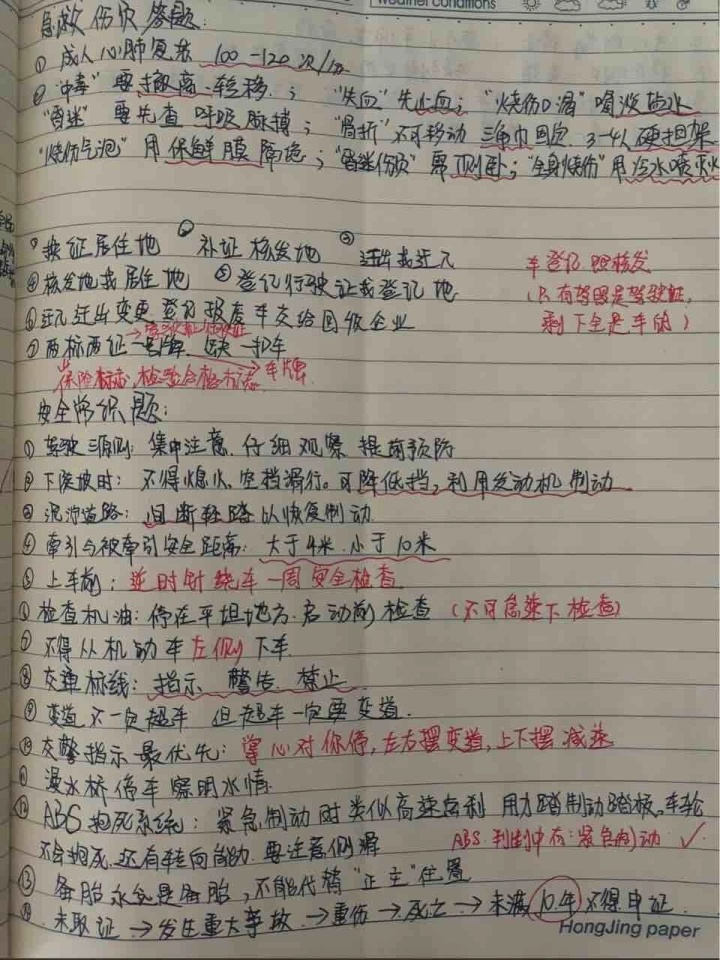 Weather conditions
急救伤员答题:
① 成人心肺复苏 100-120次/分
② "中毒"要撤离、转移.; "失血"先止血; "烧伤口渴"喝淡盐水
"昏迷"要先查呼吸脉搏; "骨折"不可移动 三角巾固定 3-4人硬担架
"烧伤气泡"用保鲜膜隔绝; "昏迷伤员"要侧卧; "全身烧伤"用冷水喷灭火
① 换证居住地 ② 补证核发地 ③ 迁出或迁入 车登记 照核发
④ 核发地或居住地 ⑤ 登记行驶证或登记地 (只有驾照是驾驶证,
⑥ 迁入迁出变更登记报废车交给回收企业 剩下全是车的)
⑦ 两标两证一号牌 缺一扣车
保险标志,检验合格标志 → 车牌
安全常识题:
① 驾驶三原则: 集中注意.仔细观察 提前预防
② 下陡坡时: 不得熄火.空挡滑行。可降低挡,利用发动机制动
③ 泥泞道路: 间断轻踏以恢复制动
④ 牵引与被牵引安全距离: 大于4米.小于10米
⑤ 上车前: 逆时针绕车一周安全检查
⑥ 检查机油: 停在平坦地方.启动前检查 (不可急速下检查)
⑦ 不得从机动车左侧下车
⑧ 交通标线: 指示 警告 禁止
⑨ 变道不一定超车 但超车一定要变道.
⑩ 交警指示最优先: 掌心对你停,左右摆变道,上下摆减速
⑪ 漫水桥停车察明水情
⑫ ABS抱死系统: 紧急制动时类似高速急刹 用力踏制动踏板。车轮
不会抱死.还有转向能力.要注意侧滑 ABS.判断中有:紧急制动 ✓
⑬ 备胎永远是备胎,不能代替"正主"位置
⑭ 未取证 → 发生重大事故 → 重伤 → 死亡 → 未满10年不得申证.
HongJing paper